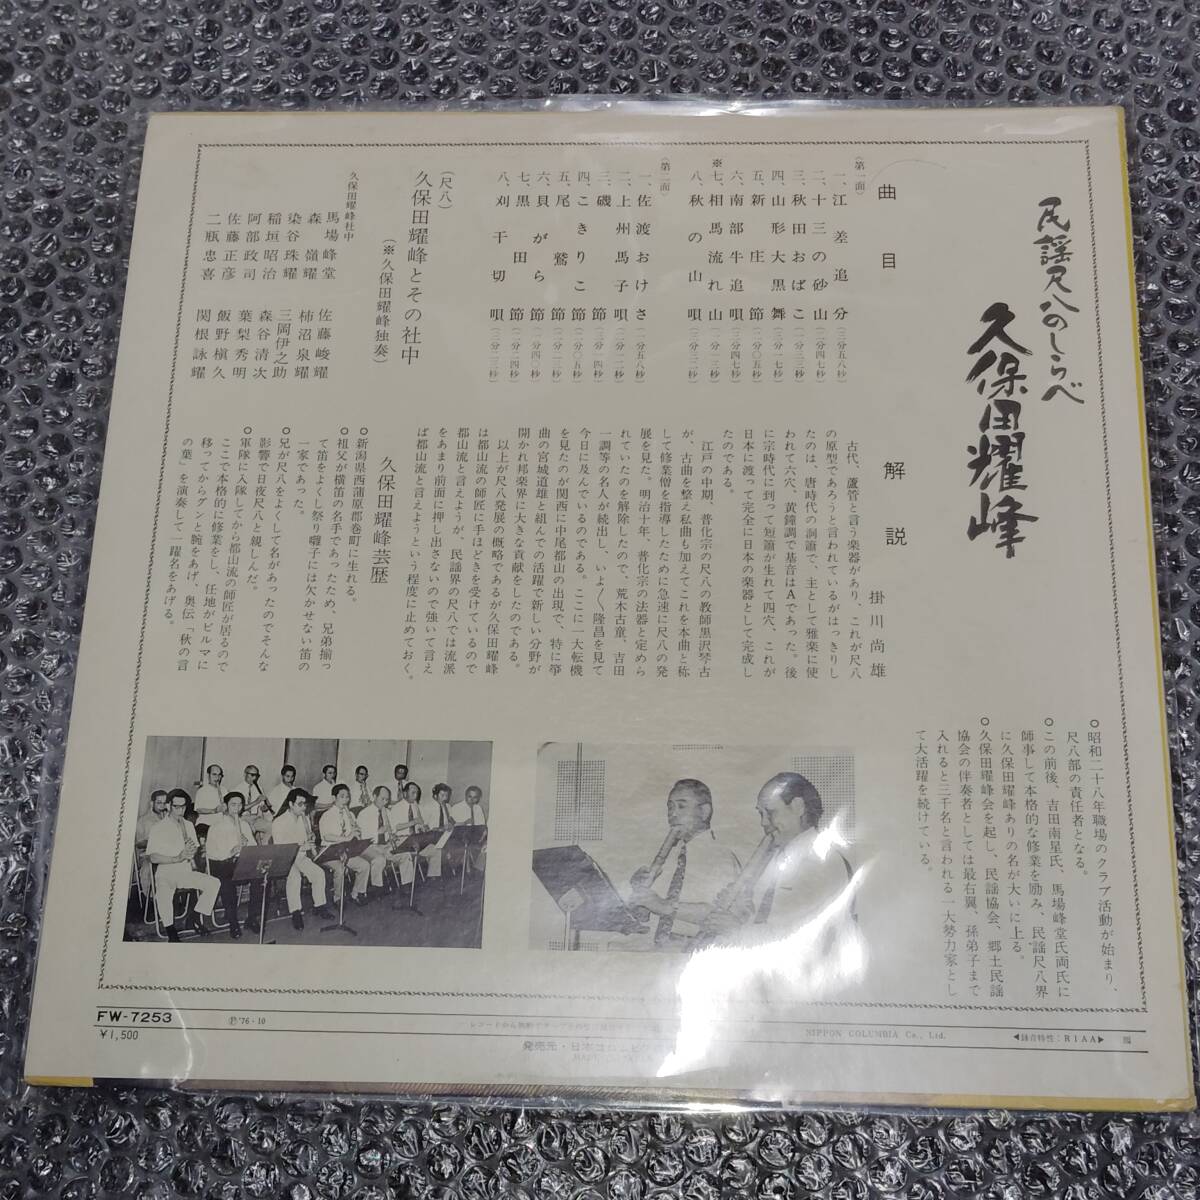 民謡尺八のしらべ
久保田耀峰
曲目
（第一面）
一、江差追分（三分五八秒）
二、十三の砂山（二分四七秒）
三、秋田おばこ（二分三三秒）
四、山形大黒舞（二分一七秒）
五、新庄節（二分〇五秒）
六、南部牛追唄（四分四七秒）
※七、相馬流れ山（四分一三秒）
八、秋の山唄（三分三二秒）
（第二面）
一、佐渡おけさ
二、上州馬子唄
三、磯節
四、こきりこ節
五、尾鷲節
六、貝がら節
七、黒田節
八、刈干切唄
（尺八）
久保田耀峰とその社中
（※久保田耀峰独奏）
久保田耀峰社中
馬場峰堂
森嶺耀
染谷珠耀
稲垣昭治
阿部政司
佐藤正彦
二瓶忠喜
佐藤峻耀
柿沼泉耀
三岡伊之助
森谷清次
葉梨秀明
飯野槇久
関根詠耀
解説
掛川尚雄
古代、蘆管と言う楽器があり、これが尺八
の原型であろうと言われているがはっきりし
たのは、唐時代の洞簫で、主として雅楽に使
われて六穴、黄鐘調で基音はAであった。後
に宗時代に到って短簫が生れて四穴、これが
日本に渡って完全に日本の楽器として完成し
たのである。
江戸の中期、普化宗の尺八の教師黒沢琴古
が、古曲を整え私曲も加えてこれを本曲と称
して修業僧を指導したために急速に尺八の発
展を見た。明治十年、普化宗の法器と定めら
れていたのを解除したので、荒木古童、吉田
一調等の名人が続出し、いよ〱隆昌を見て
今日に及んでいるのである。ここに一大転機
を見たのが関西に中尾都山の出現で、特に箏
曲の宮城道雄と組んでの活躍で新しい分野が
開かれ邦楽界に大きな貢献をしたのである。
以上が尺八発展の概略であるが久保田耀峰
は都山流の師匠に手ほどきを受けているので
都山流と言えようが、民謡界の尺八では流派
をあまり前面に押し出さないので強いて言え
ば都山流と言えようという程度に止めておく。
久保田耀峰芸歴
○新潟県西蒲原郡巻町に生れる。
○祖父が横笛の名手であったため、兄弟揃っ
て笛をよくし祭り囃子には欠かせない笛の
一家であった。
○兄が尺八をよくして名があったのでそんな
影響で日夜尺八と親しんだ。
○軍隊に入隊してから都山流の師匠が居るので
ここで本格的に修業をし、任地がビルマに
移ってからグンと腕をあげ、奥伝「秋の言
の葉」を演奏して一躍名をあげる。
○昭和二十八年職場のクラブ活動が始まり、
尺八部の責任者となる。
○この前後、吉田南星氏、馬場峰堂氏両氏に
師事して本格的な修業を励み、民謡尺八界
に久保田耀峰ありの名が大いに上る。
○久保田耀峰会を起し、民謡協会、郷土民謡
協会の伴奏者としては最右翼、孫弟子まで
入れると三千名と言われる一大勢力家とし
て大活躍を続けている。
FW-7253
¥1,500
Ⓟ'76・10
NIPPON COLUMBIA Co., Ltd.
◀録音特性：RIAA▶